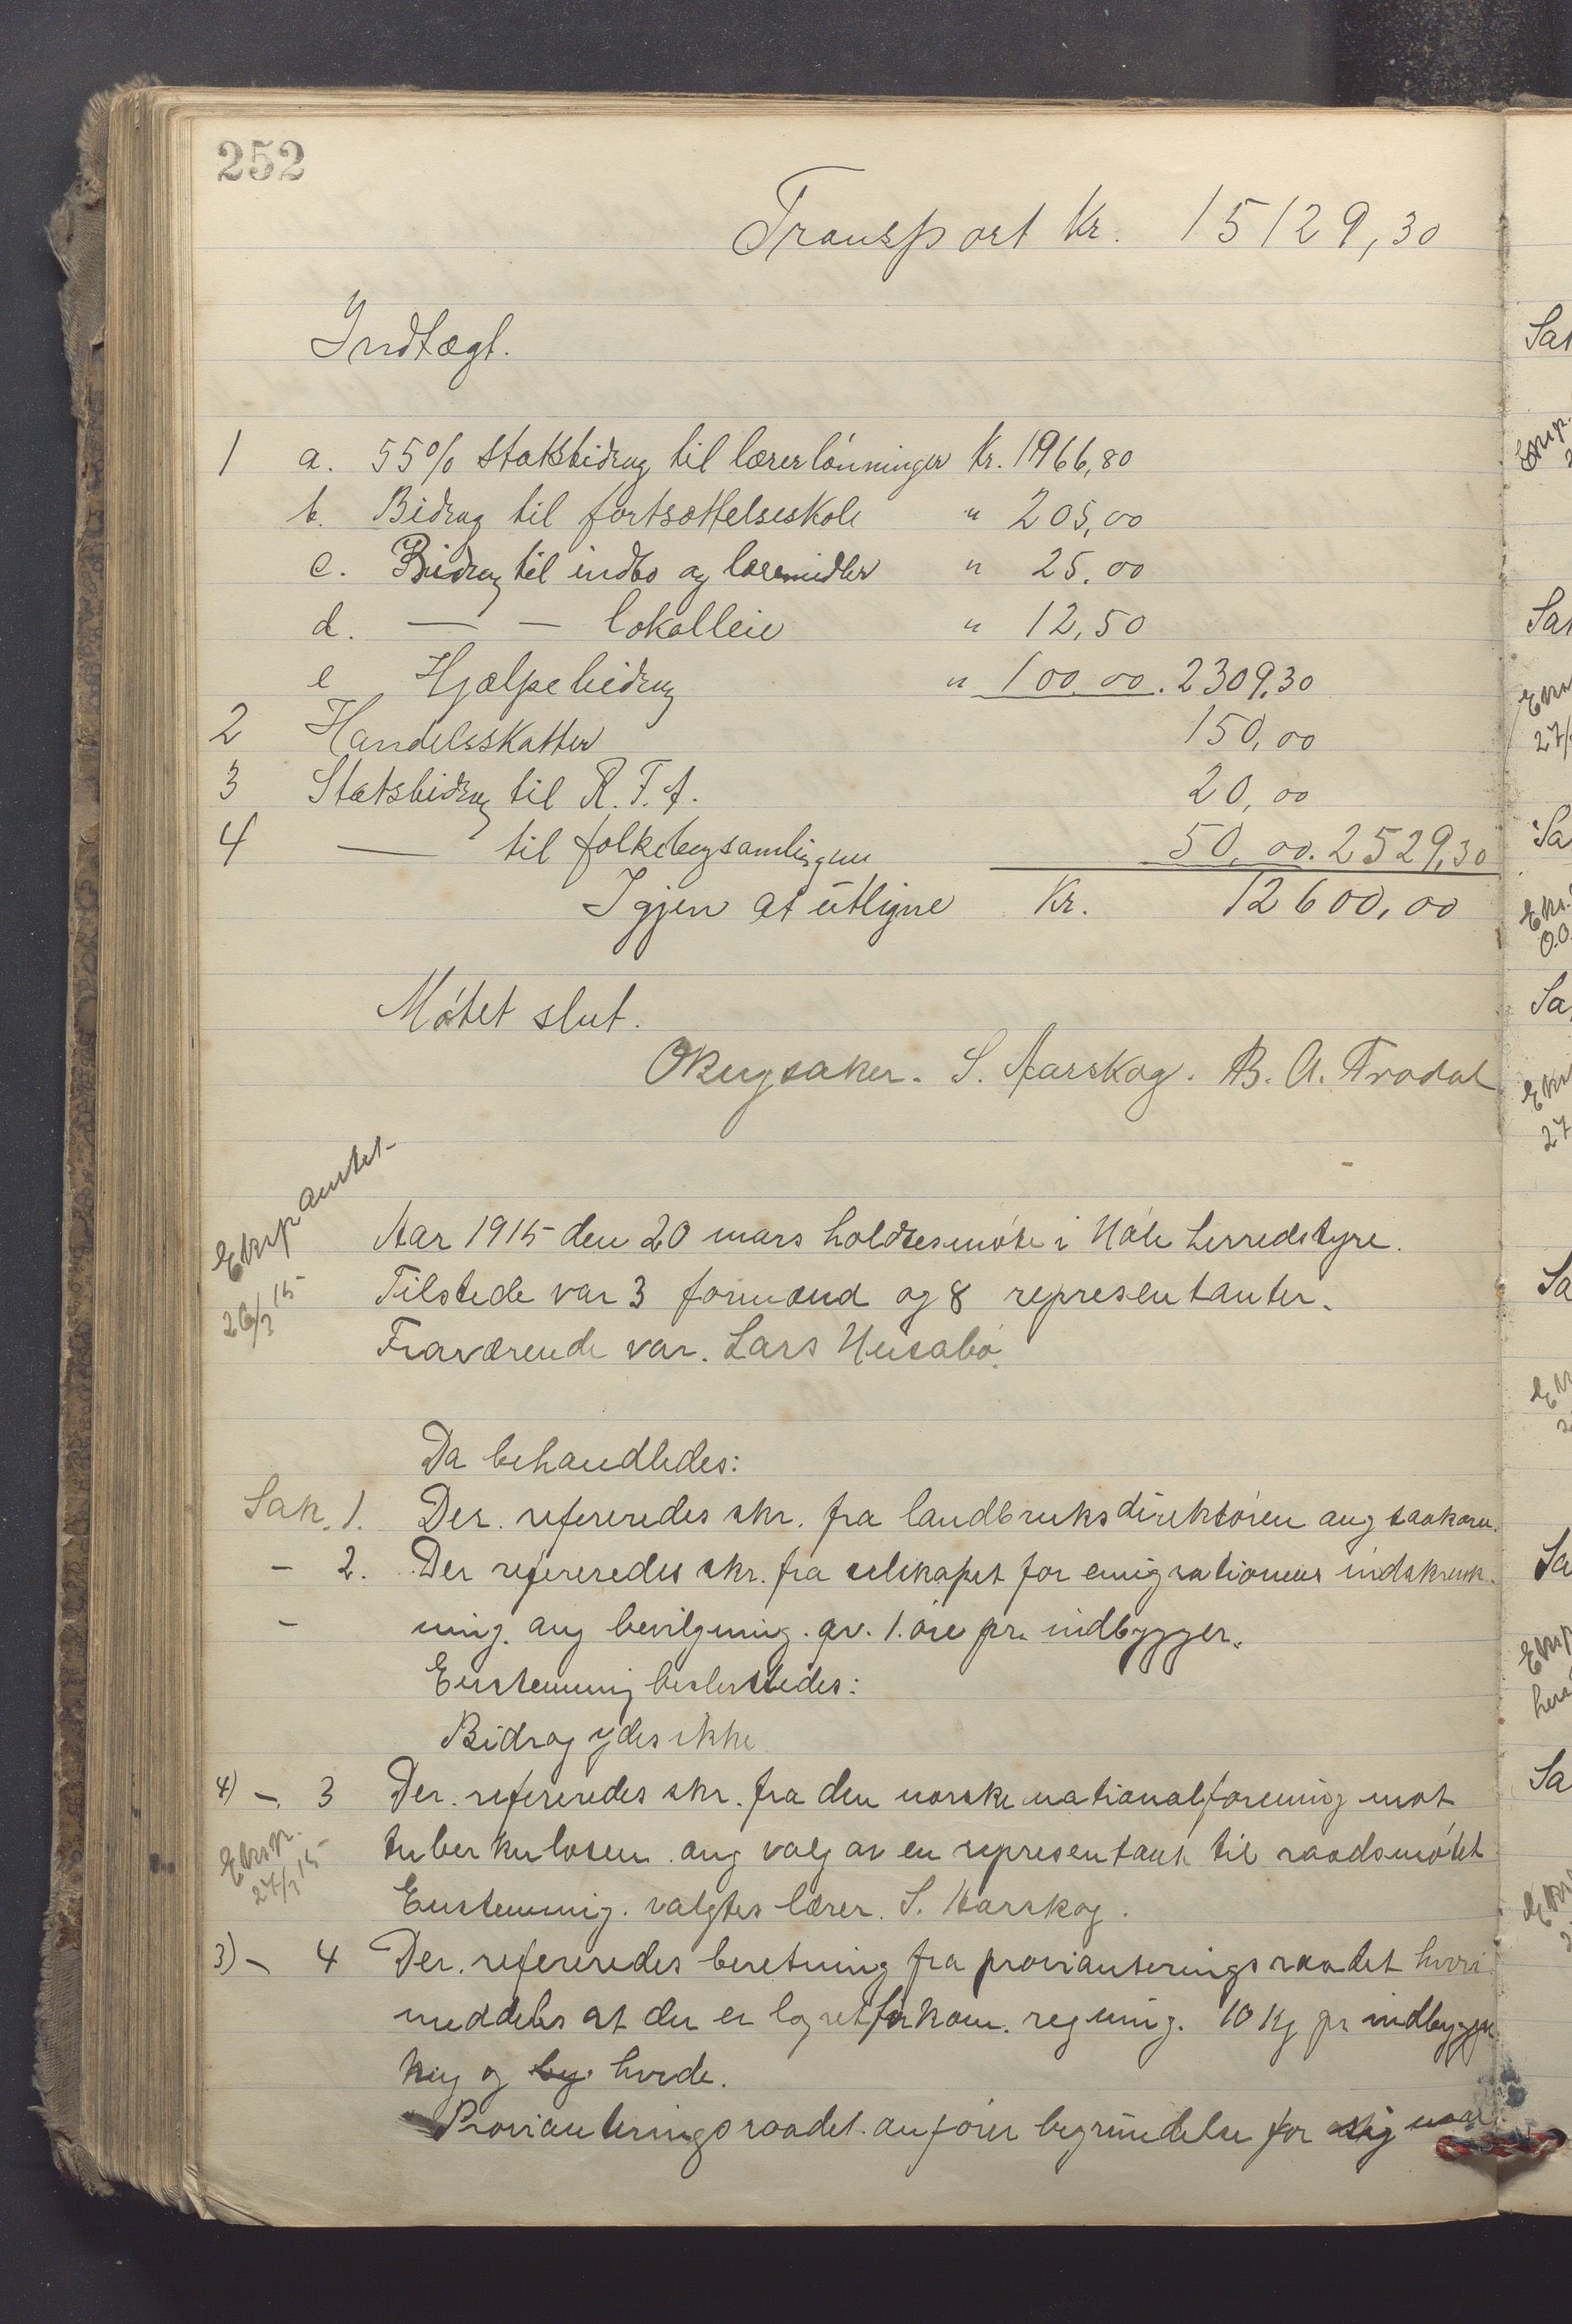 252
Transport Kr. 15129,30
Indtægt.
1 a. 55% statsbidrag til lærerlönninger Kr. 1966,80
b. Bidrag til fortsættelseskole " 205,00
c. Bidrag til indbo og læremidler " 25.00
d. — — lokalleie " 12,50
e Hjælpebidrag " 100.00. 2309,30
2 Handelsskatter 150,00
3 Statsbidrag til R. F. A. 20,00
4 — til folkebogsamlingene 50,00. 2529,30
Igjen at utligne Kr. 12600,00
Mötet slut.
S. Aarskog. B. A. Trodal
Eksp amtet
26/3 15
Aar 1915 den 20 mars holdtes möte i Höle herredstyre.
Tilstede var 3 formænd og 8 representanter.
Fraværende var. Lars Husabö.
Da behandledes:
Sak. 1. Der. refereredes skr. fra landbruksdirektören ang saakorn.
— 2. Der refereredes skr. fra selskapet for emigrationens indskrænk-
— ning. ang bevilgning. av. 1. öre pr. indbygger.
Enstemmig besluttedes:
Bidrag ydes ikke
4) —. 3 Der. refereredes skr. fra den norske nationalforening mot
tuberkulosen. ang valg av en representant til raadsmötet
Eksp. 27/3 15
Enstemmig. valgtes lærer. S. Aarskog.
3) — 4 Der. refereredes beretning fra provianteringsraadet hvori
meddeles at der er lagret for kom. regning. 10 Kg pr indbygger
rug og byg. hvede.
Provianteringsraadet. anförer begrundelse for